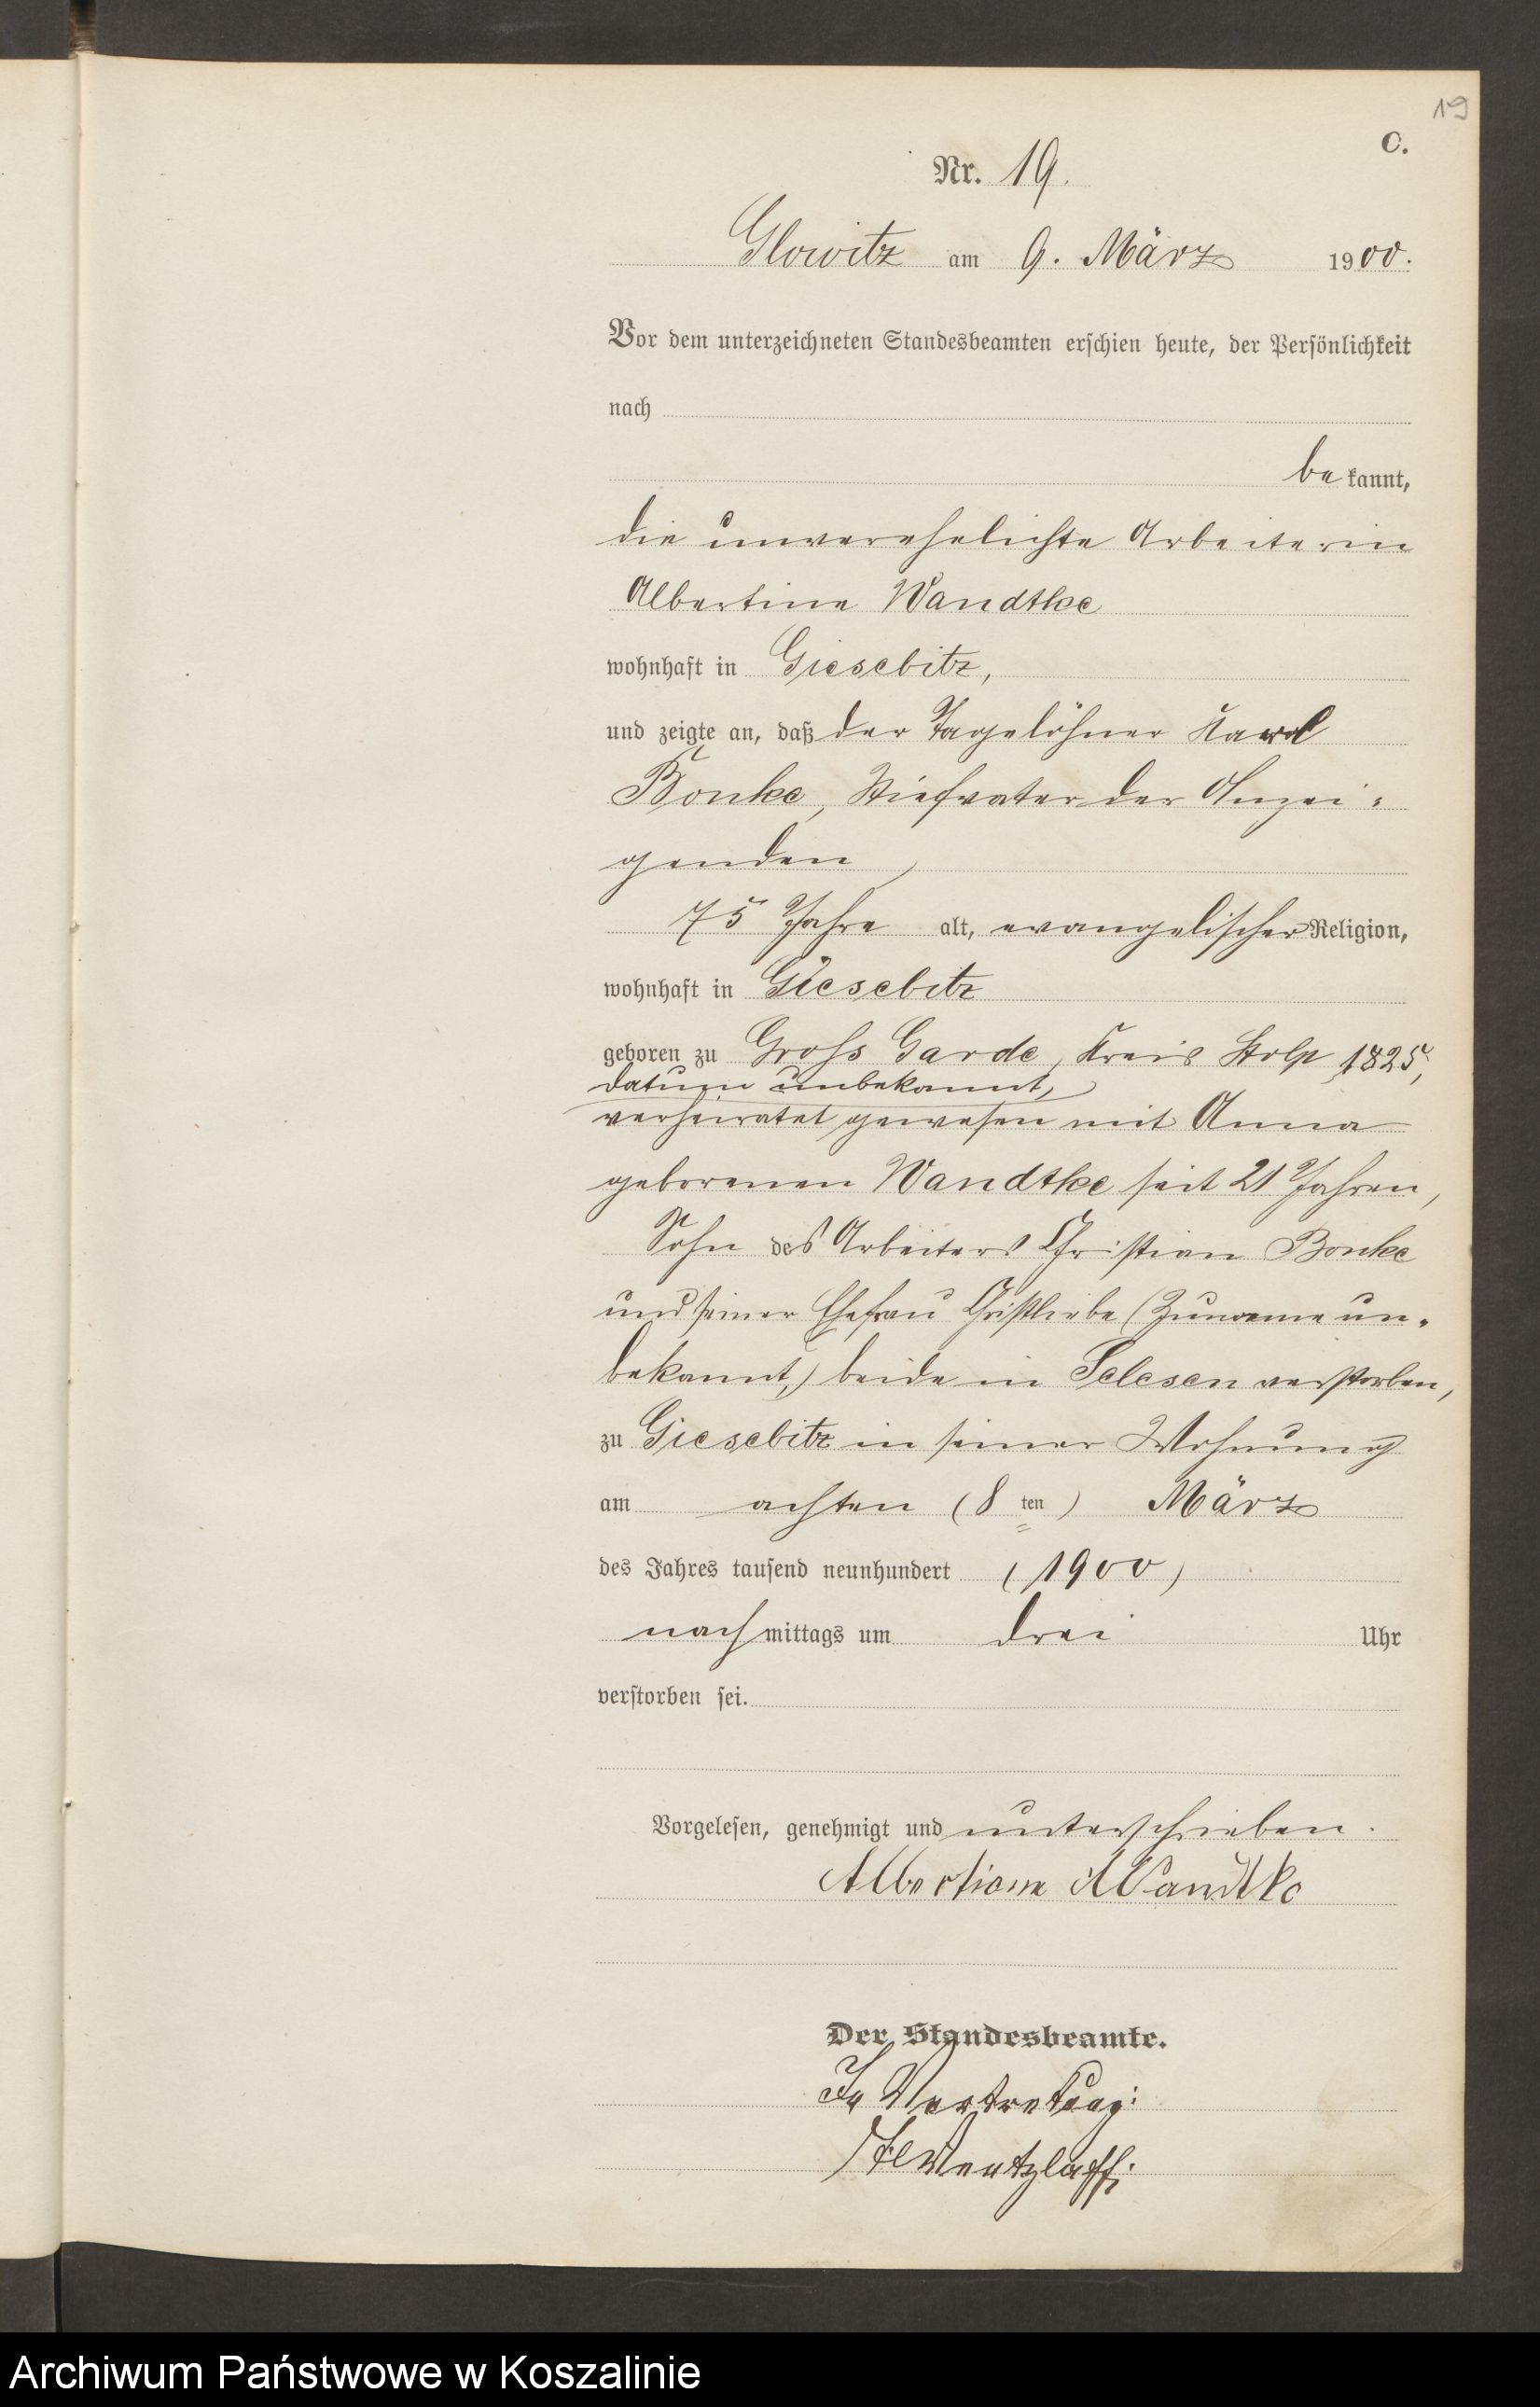 19
C.
Nr. 19.
Glowitz am 9. März 1900.
Vor dem unterzeichneten Standesbeamten erschien heute, der Persönlichkeit
nach
bekannt,
die unverehelichte Arbeiterin
Albertine Wandtke
wohnhaft in Giesebitz,
und zeigte an, daß der Tagelöhner Karl
Bonke, Stiefvater der Anzei=
genden,
75 Jahre alt, evangelischer Religion,
wohnhaft in Giesebitz
geboren zu Gross Garde, Kreis Stolp 1825,
datum unbekannt,
verheiratet gewesen mit Anna
geborenen Wandtke seit 21 Jahren,
Sohn des Arbeiters Christian Bonke
und seiner Ehefrau Christliebe (Zuname un=
bekannt,) beide in Selesen verstorben,
zu Giesebitz in seiner Wohnung
am achten (8 ten) März
des Jahres tausend neunhundert (1900)
nachmittags um drei Uhr
verstorben sei.
Vorgelesen, genehmigt und unterschrieben.
Albertiene Wandtke
Der Standesbeamte.
In Vertretung:
Wentzlaff.
Archiwum Państwowe w Koszalinie